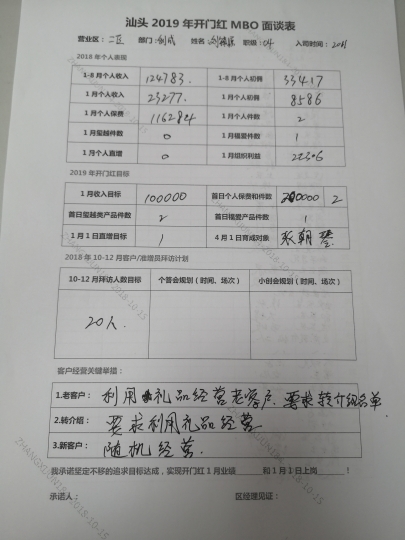 汕头 2019 年开门红 MBO 面谈表
营业区：二区 部门：创成 姓名： 职级：04 入司时间：2001
2018 年个人表现
1-8 月个人收入 124783. 1-8 月个人初佣 33417
1 月个人收入 23277. 1 月个人初佣 8586
1 月个人保费 116284 1 月个人件数 2
1 月玺越件数 0 1 月福爱件数 1
1 月个人直增 0 1 月组织利益 22306
2019 年开门红目标
1 月收入目标 100000 首日个人保费和件数 200000 2
首日玺越类产品件数 2 首日福爱产品件数 1
1 月 1 日直增目标 1 4 月 1 日育成对象 张朝
2018 年 10-12 月客户/准增员拜访计划
10-12 月拜访人数目标 个答会规划（时间、场次） 小创会规划（时间、场次）
20人.
客户经营关键举措：
1.老客户： 利用礼品经营老客户. 要求转介绍名单
2.转介绍： 要求利用礼品经营
3.新客户： 随机经营.
我承诺坚定不移的追求目标达成，实现开门红 1 月业绩 和 1 月 1 日上岗 ！
承诺人： 区经理见证：